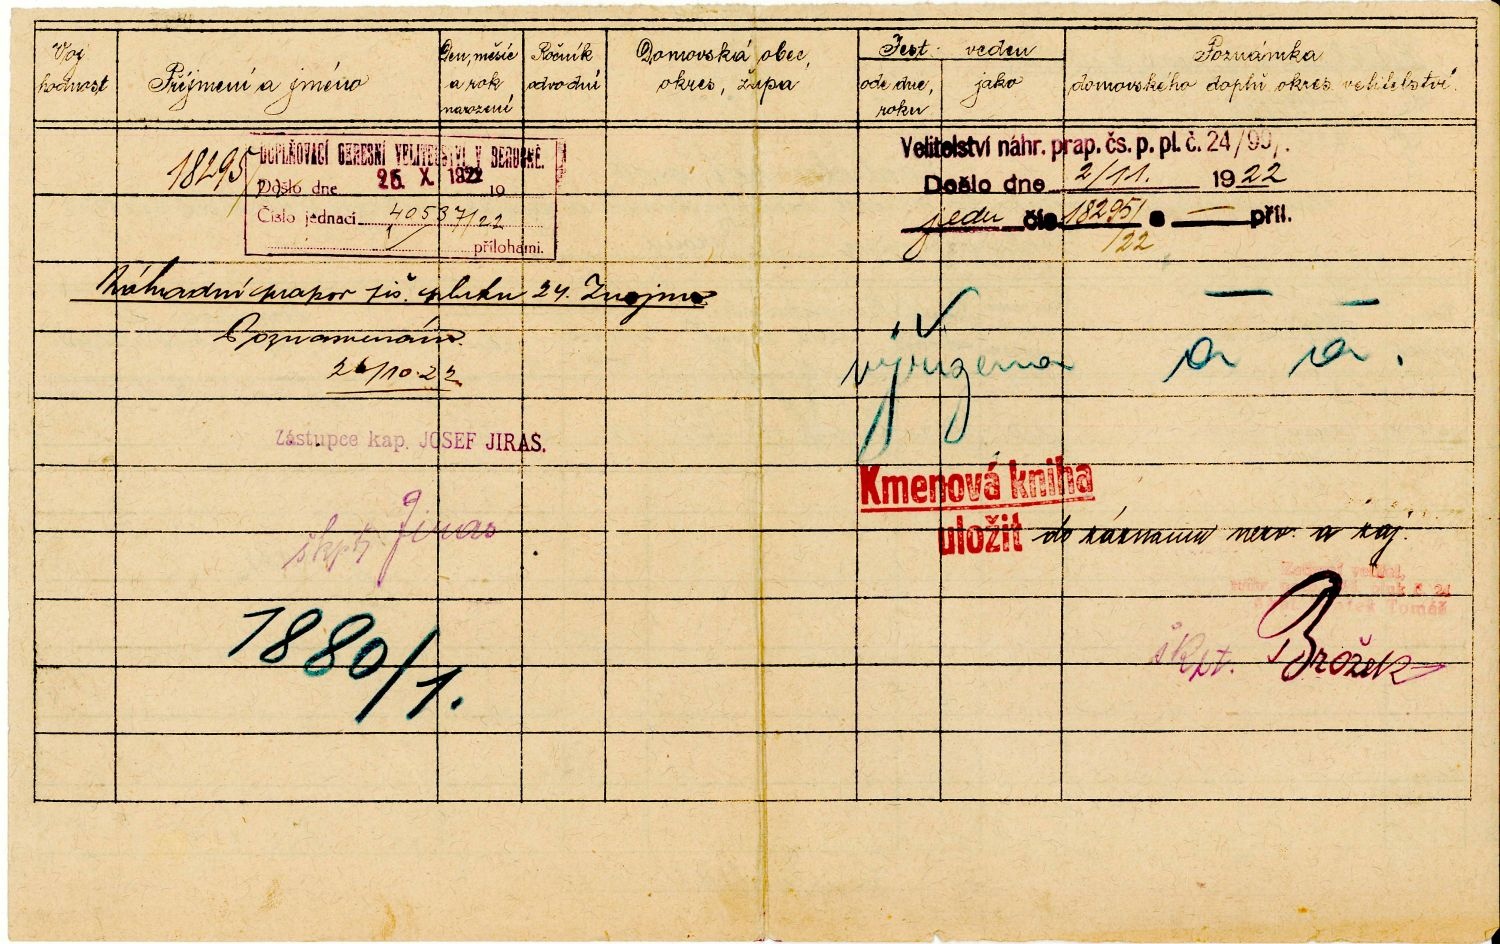 Voj. hodnost
Příjmení a jméno
Den, měsíc a rok narození
Ročník odvodní
Domovská obec, okres, župa
Jest veden
ode dne, roku
jako
Poznámka domovského doplň okres velitelství.
18295/
DOPLŇOVACÍ OKRESNÍ VELITELSTVÍ V BEROUNĚ.
Došlo dne 25. X. 1922 19
Číslo jednací 40537/22
přílohami.
Velitelství náhr. prap. čs. p. pl. č. 24/99/.
Došlo dne 2/11. 1922
jedn čís. 18295/ s — příl.
/22
Náhradní prapor pěš. pluku 24. Znojmo
Poznamenán.
26/10.22
vyřízena a a.
Zástupce kap. JOSEF JIRAS.
škpt. Jiras
Kmenová kniha
uložit do záznamu nerv. a zaj.
pluk č. 24
Tomáš
škpt. Brožek
1880/1.